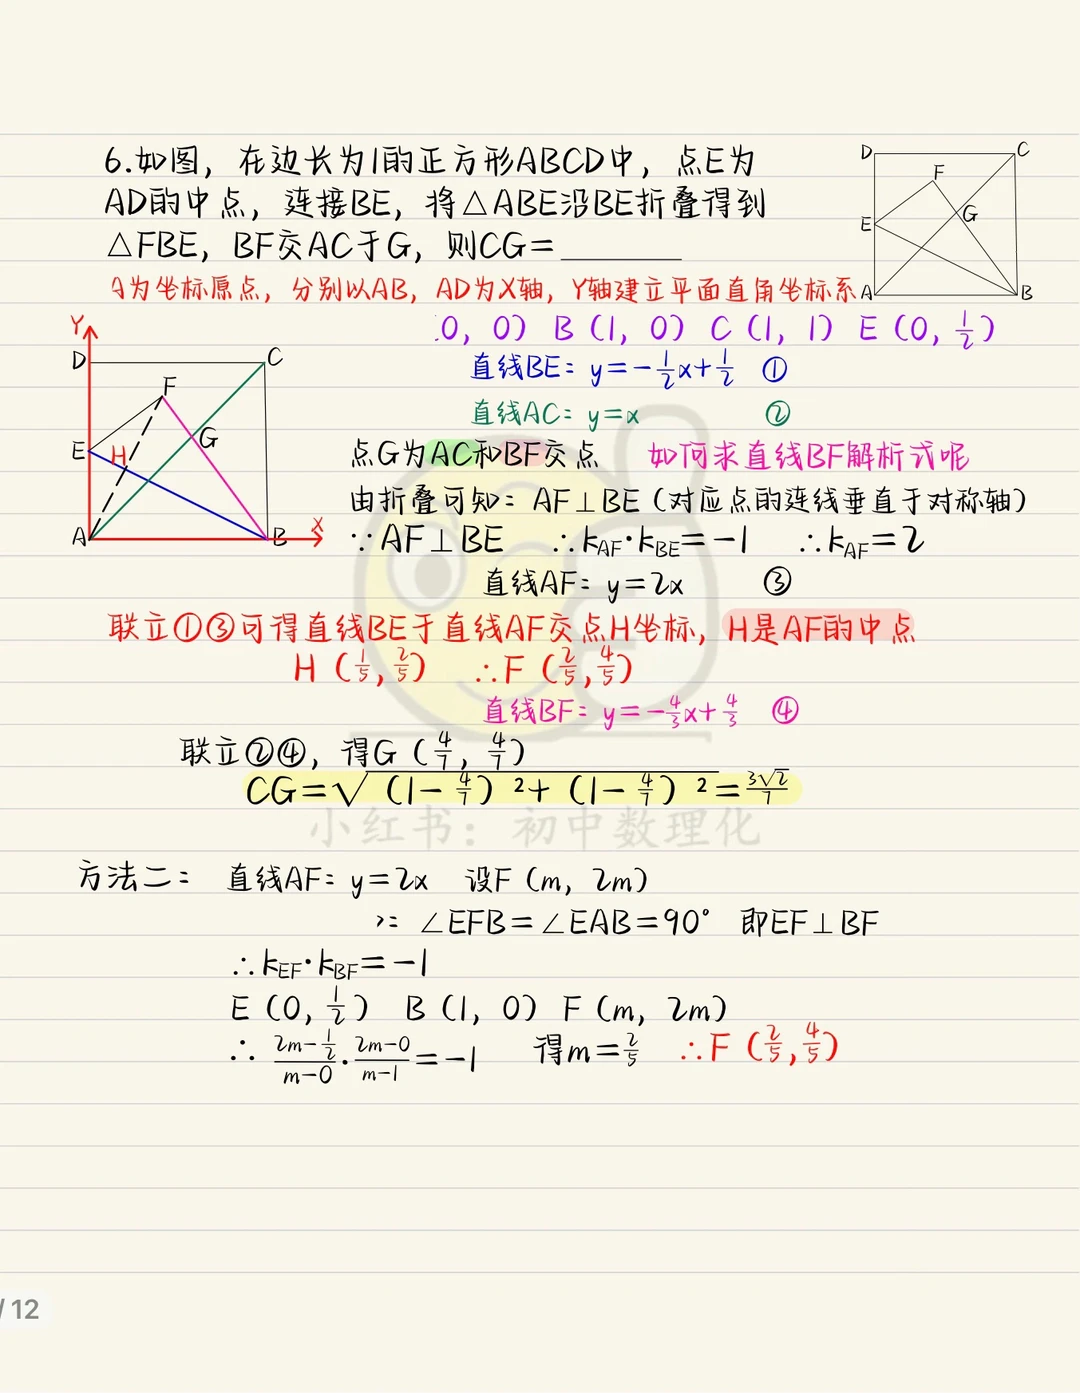 6.如图，在边长为1的正方形ABCD中，点E为
AD的中点，连接BE，将△ABE沿BE折叠得到
△FBE，BF交AC于G，则CG=________
D
C
F
G
E
A
B
A为坐标原点，分别以AB，AD为X轴，Y轴建立平面直角坐标系
0，0） B（1，0） C（1，1） E（0，1/2）
Y
D
C
F
E
H
G
A
B
X
直线BE：y=-1/2x+1/2 ①
直线AC：y=x ②
点G为AC和BF交点 如何求直线BF解析式呢
由折叠可知：AF⊥BE（对应点的连线垂直于对称轴）
∵AF⊥BE ∴kAF·kBE=-1 ∴kAF=2
直线AF：y=2x ③
联立①③可得直线BE于直线AF交点H坐标，H是AF的中点
H（1/5，2/5） ∴F（2/5，4/5）
直线BF：y=-4/3x+4/3 ④
联立②④，得G（4/7，4/7）
CG=√（1-4/7）²+（1-4/7）²=3√2/7
小红书：初中数理化
方法二： 直线AF：y=2x 设F（m，2m）
∠EFB=∠EAB=90° 即EF⊥BF
∴kEF·kBF=-1
E（0，1/2） B（1，0） F（m，2m）
∴ (2m-1/2)/(m-0)·(2m-0)/(m-1)=-1 得m=2/5 ∴F（2/5，4/5）
/12